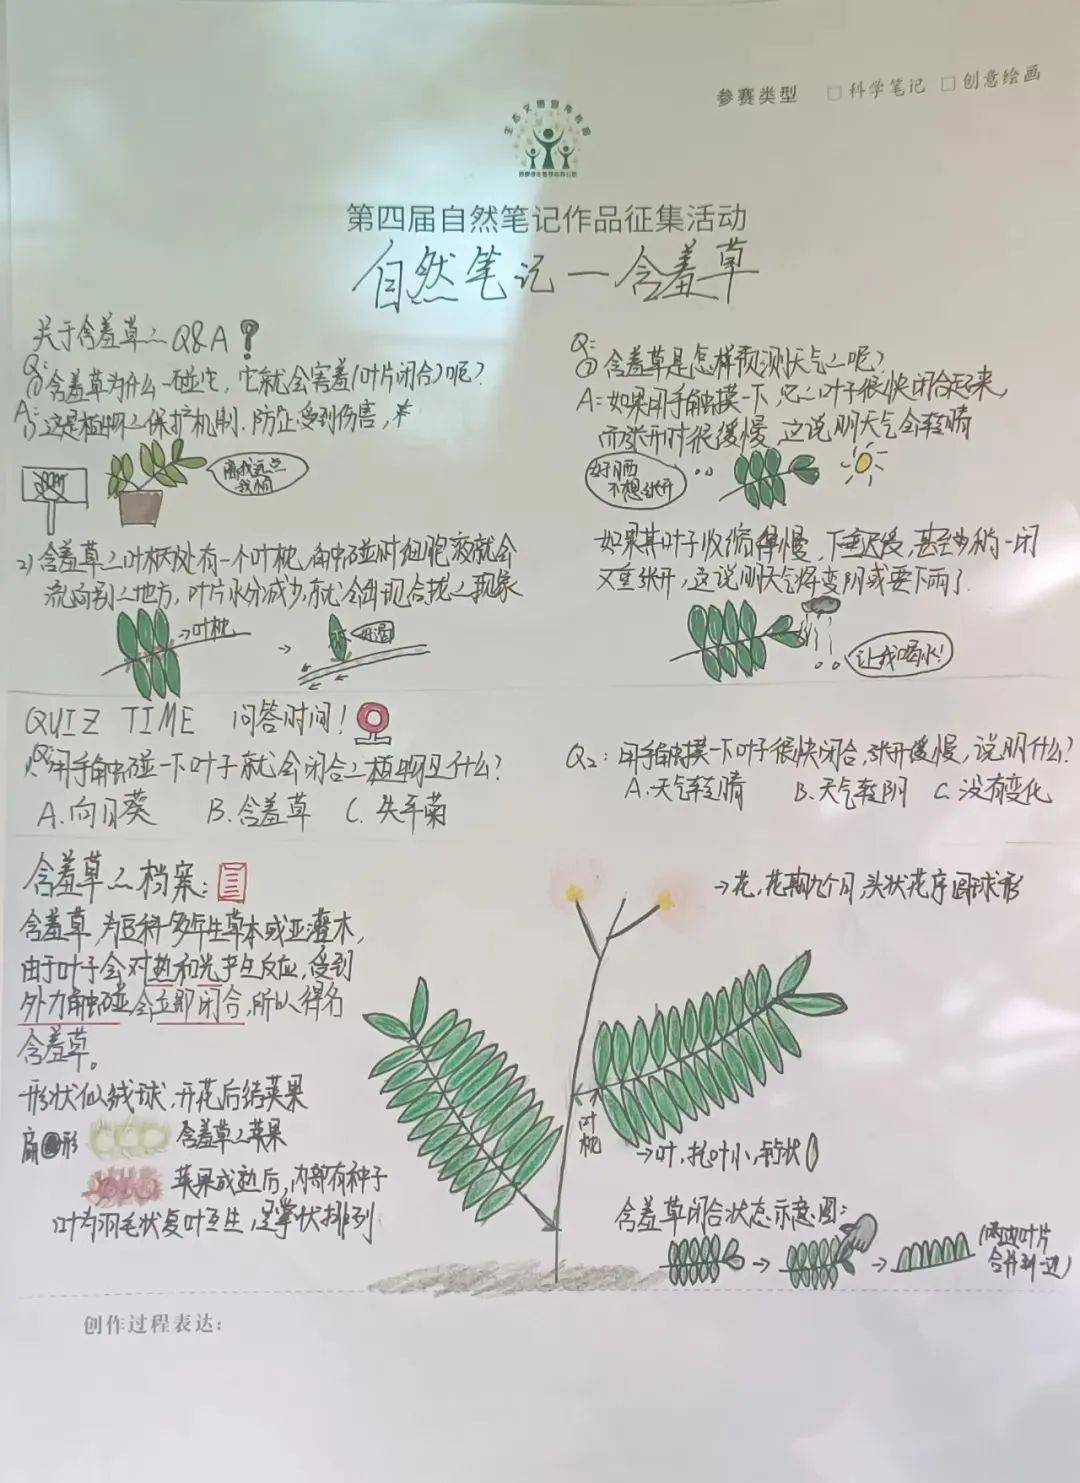 参赛类型 □ 科学笔记 □ 创意绘画
第四届自然笔记作品征集活动
自然笔记一含羞草
关于含羞草之Q&A?
Q:
①含羞草为什么一碰它,它就会害羞(叶片闭合)呢?
A:
1)这是植物之保护机制,防止受到伤害,
离我远点
我怕
2)含羞草之叶柄处有一个叶枕,触碰时细胞液就会
流向别之地方,叶片水分减少,就会出现合拢之现象
→叶枕
好渴
Q:
②含羞草是怎样预测天气之呢?
A:如果用手触摸一下,它之叶子很快闭合起来,
而张开时很缓慢,这说明天气会转晴
好晒
不想张开
如果其叶子收缩得慢,下垂迟缓,甚至少稍一闭
又重张开,这说明天气将变阴或要下雨了.
让我喝水!
QUIZ TIME 问答时间!
1.Q:用手触碰一下叶子就会闭合之植物是什么?
A.向日葵 B.含羞草 C.失车菊
Q2:用手触摸一下叶子很快闭合,张开缓慢,说明什么?
A.天气转晴 B.天气转阴 C.没有变化
含羞草之档案:
含羞草,为豆科多年生草本或亚灌木,
由于叶子会对热和光产生反应,受到
外力触碰会立即闭合,所以得名
含羞草。
形状似绒球,开花后结荚果
扁形 含羞草之荚果
荚果成熟后,内部有种子
叶为羽毛状复叶互生,呈掌状排列
→花,花期九个月,头状花序圆球形
叶枕
→叶,托叶小,钙状
含羞草闭合状态示意图:
(两边叶片
合并到一边)
创作过程表达: